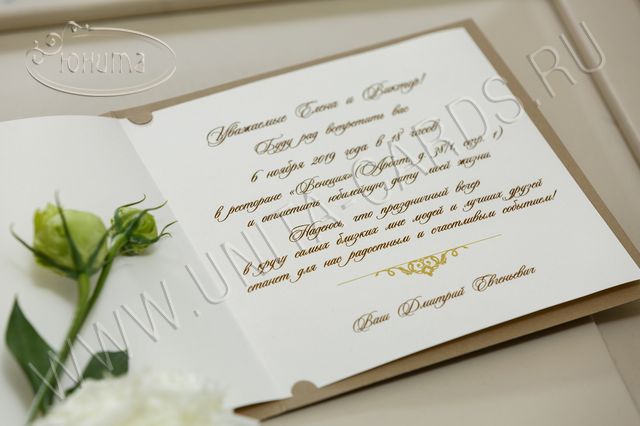 Юнита
Уважаемые Елена и Виктор!
Буду рад встретить вас
6 ноября 2019 года в 18 часов
в ресторане «Венеция» (Арбат, д. 38/1 стр. 1)
и отметить юбилейную дату моей жизни.
Надеюсь, что праздничный вечер
в кругу самых близких мне людей и лучших друзей
станет для нас радостным и счастливым событием!
Ваш Дмитрий Евгеньевич
WWW.UNITA-CARDS.RU